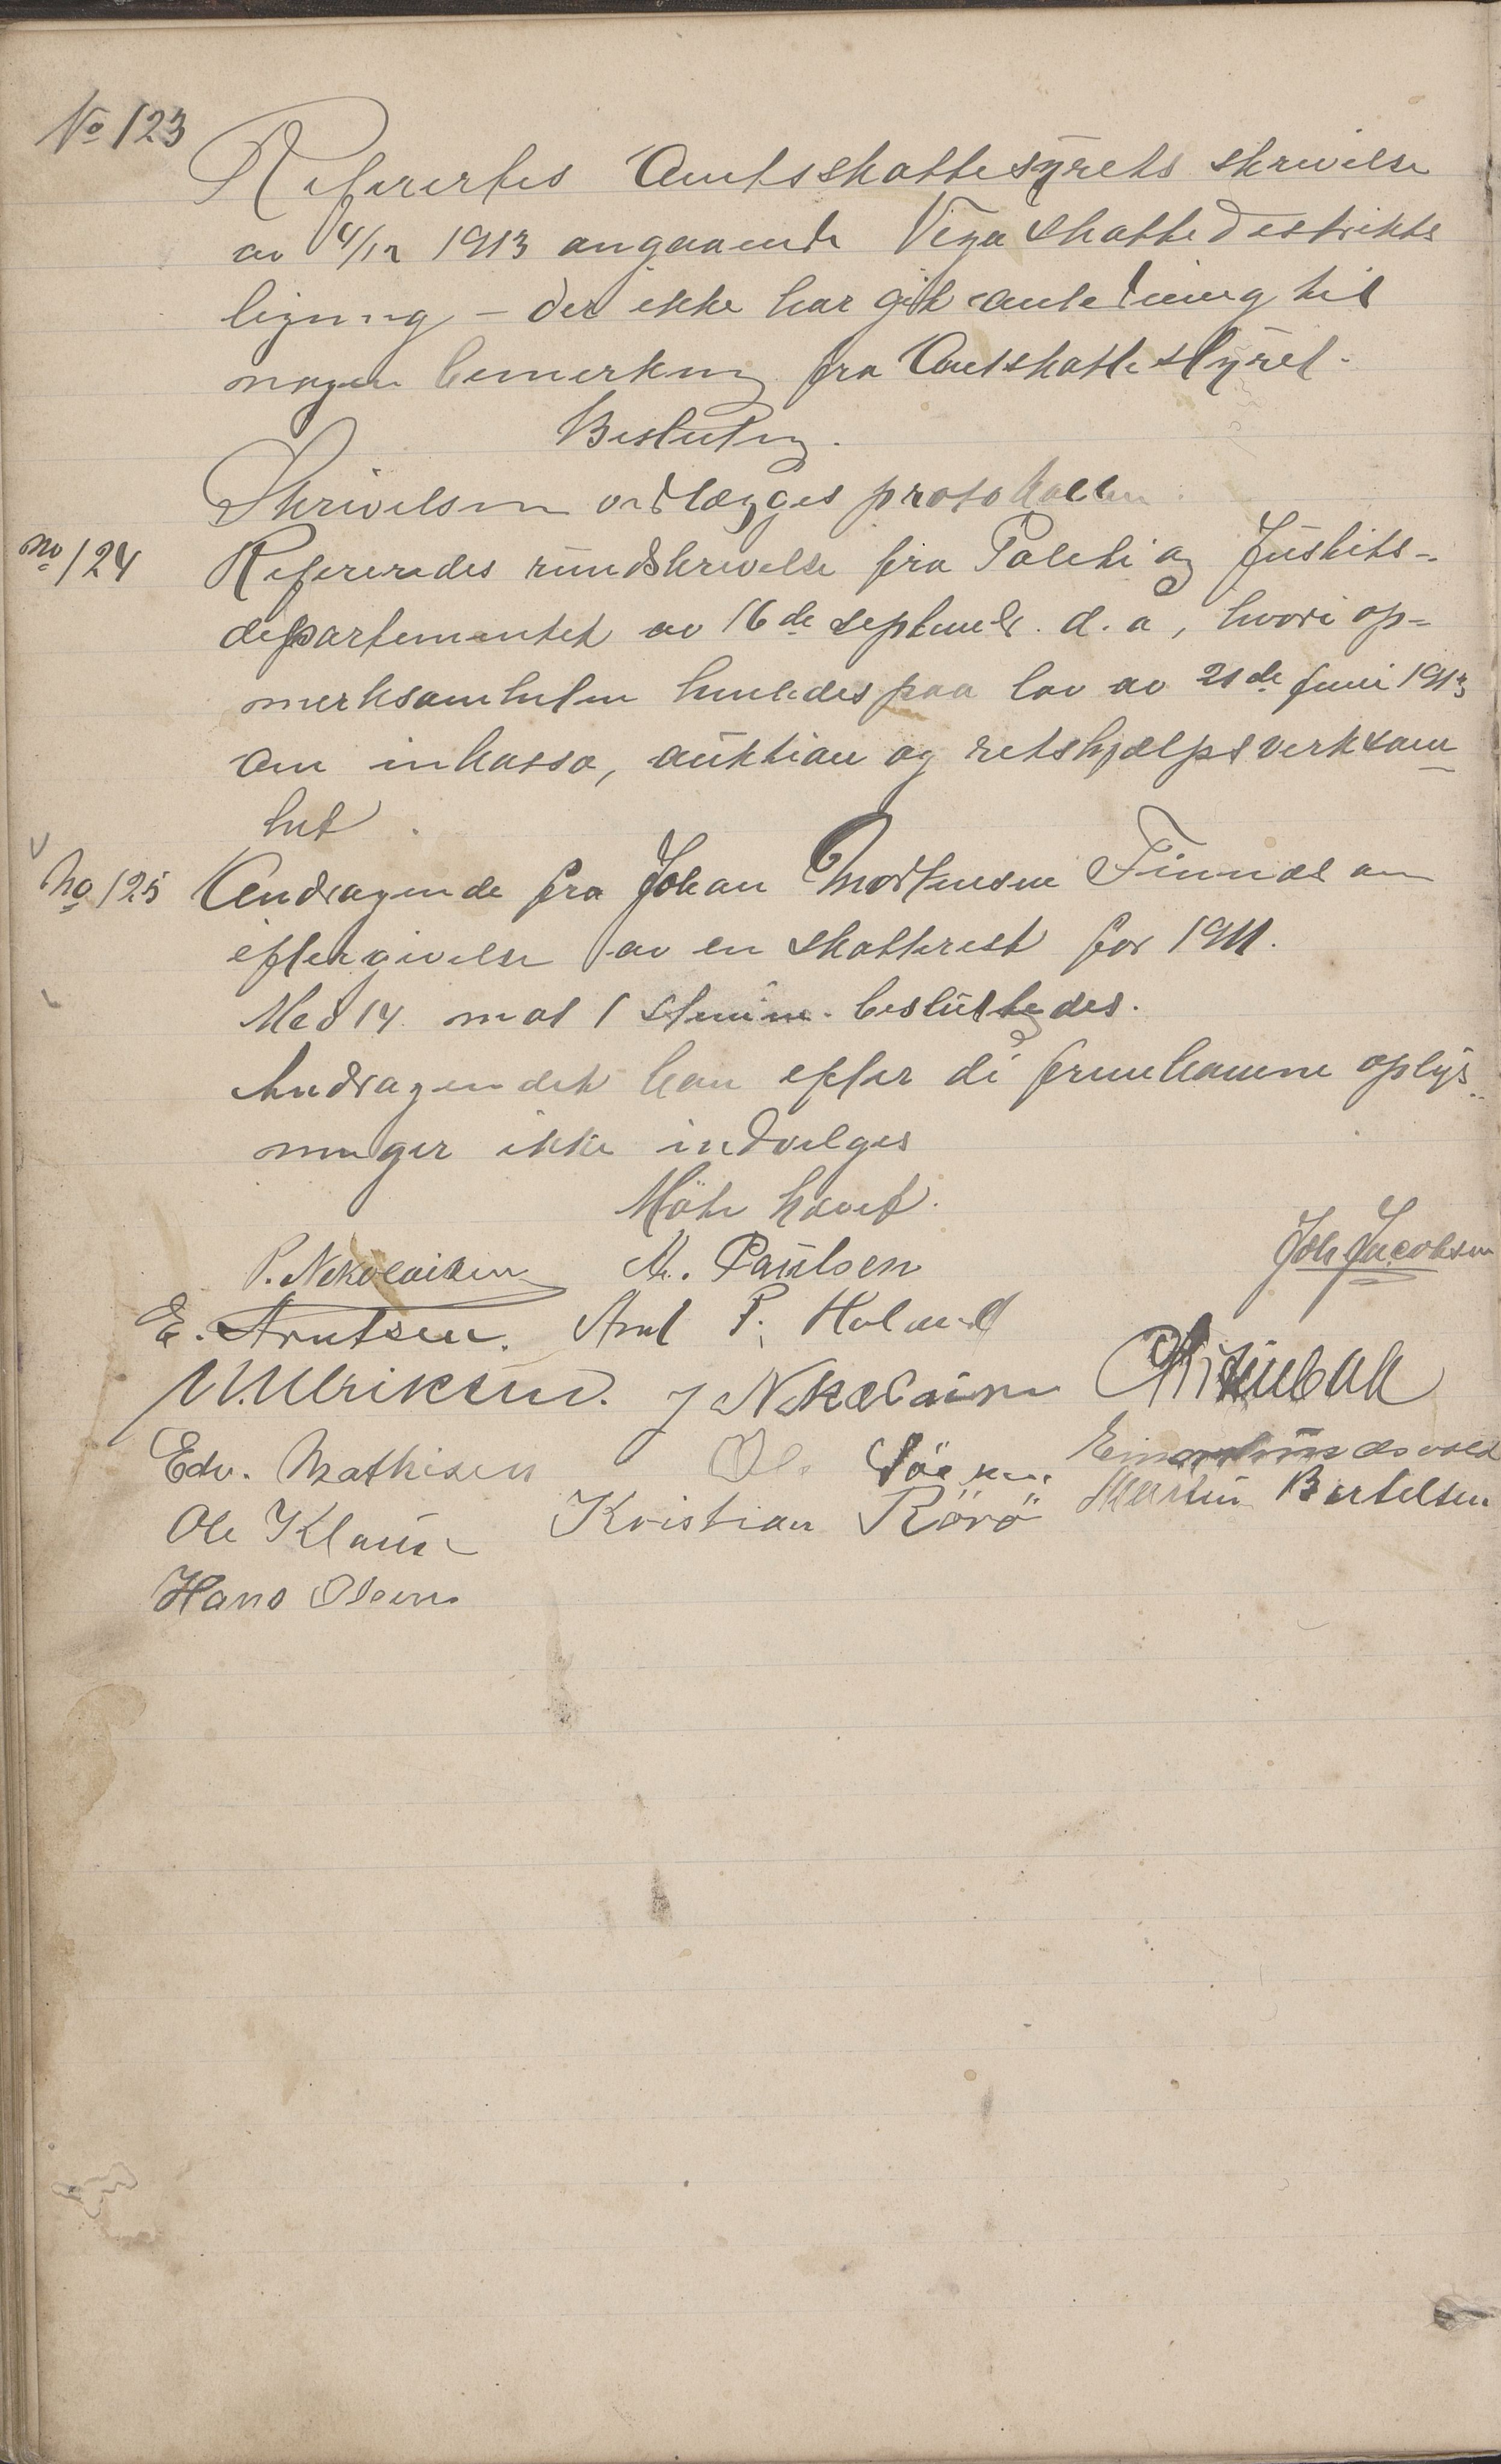 No 123
Refirertes Amtsskattestyrets skrivelse
av 4/12 1913 angaaende Vega Skattedistrikts
ligning – der ikke har git anledning til
nogen bemerkning fra Amtsskattestyret.
Beslutng.
Skrivelsen vedlægges protokollen.
No 124 Refereredes rundskrivelse fra Politi og Justits-
departementet av 16de septembr. d. a, hvori op-
merksomheten henledes paa lov av 21de juni 1913
om inkasso, auktion og retshjælpsverksom-
het.
No 125 Andragende fra Johan Mortensen Finnes om
eftergivelse av en skatterest for 1911.
Med 14 mot 1 stemme besluttedes.
Andragendet kan efter de fremkomne oplys-
ninger ikke indvilges
Möte hævet.
Joh Jacobsen
P. Nekolaisen M. Paulsen
E. Arntsen. Arnt P. Holand
M. Ulriksen. J Nikolaisen
Edv. Mathisen Ole
Martin Bertelsen
Ole Klausen Kristian Rörö
Hans Olsen